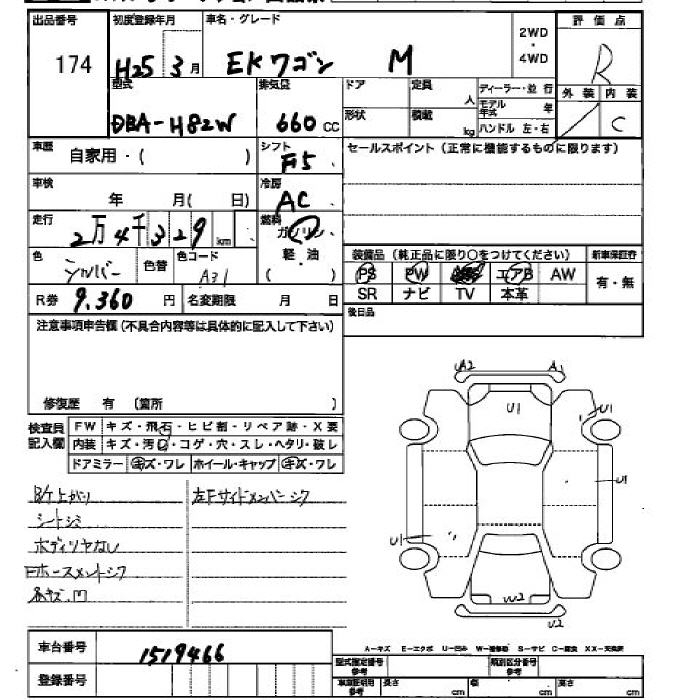 出品番号 初度登録年月 車名・グレード 2WD・4WD 評価点
174 H25 3月 EKワゴン M R
型式 排気量 ドア 定員 人 ディーラー・並行 外装 内装
DBA-H82W 660cc 形状 積載 kg モデル年式 年 C
ハンドル 左・右
車歴 自家用・( ) シフト F5 セールスポイント(正常に機能するものに限ります)
車検 年 月( 日) 冷房 AC
走行 2万4千329km 燃料 ガソリン・軽油 ( )
色 シルバー 色替 色コード A31
装備品(純正品に限り○をつけてください) 新車保証書
PS PW エアB AW 有・無
SR ナビ TV 本革
R券 9,360円 名変期限 月 日
後日品
注意事項申告欄(不具合内容等は具体的に記入して下さい)
修復歴 有 (箇所 )
検査員記入欄 FW キズ・飛石・ヒビ割・リペア跡・X要
内装 キズ・汚・コゲ・穴・スレ・ヘタリ・破レ
ドアミラー キズ・ワレ ホイール・キャップ キズ・ワレ
左Fサイドメンバーシワ
シートシミ
ボディツヤなし
A2 A1
U1
U1
U1
U1
W2
U2
車台番号 1519466
登録番号
A-キズ E-エクボ U-凹み W-補修跡 S-サビ C-腐食 XX-交換済
型式指定番号 参考 類別区分番号 参考
車庫証明用 参考 長さ cm 幅 cm 高さ cm